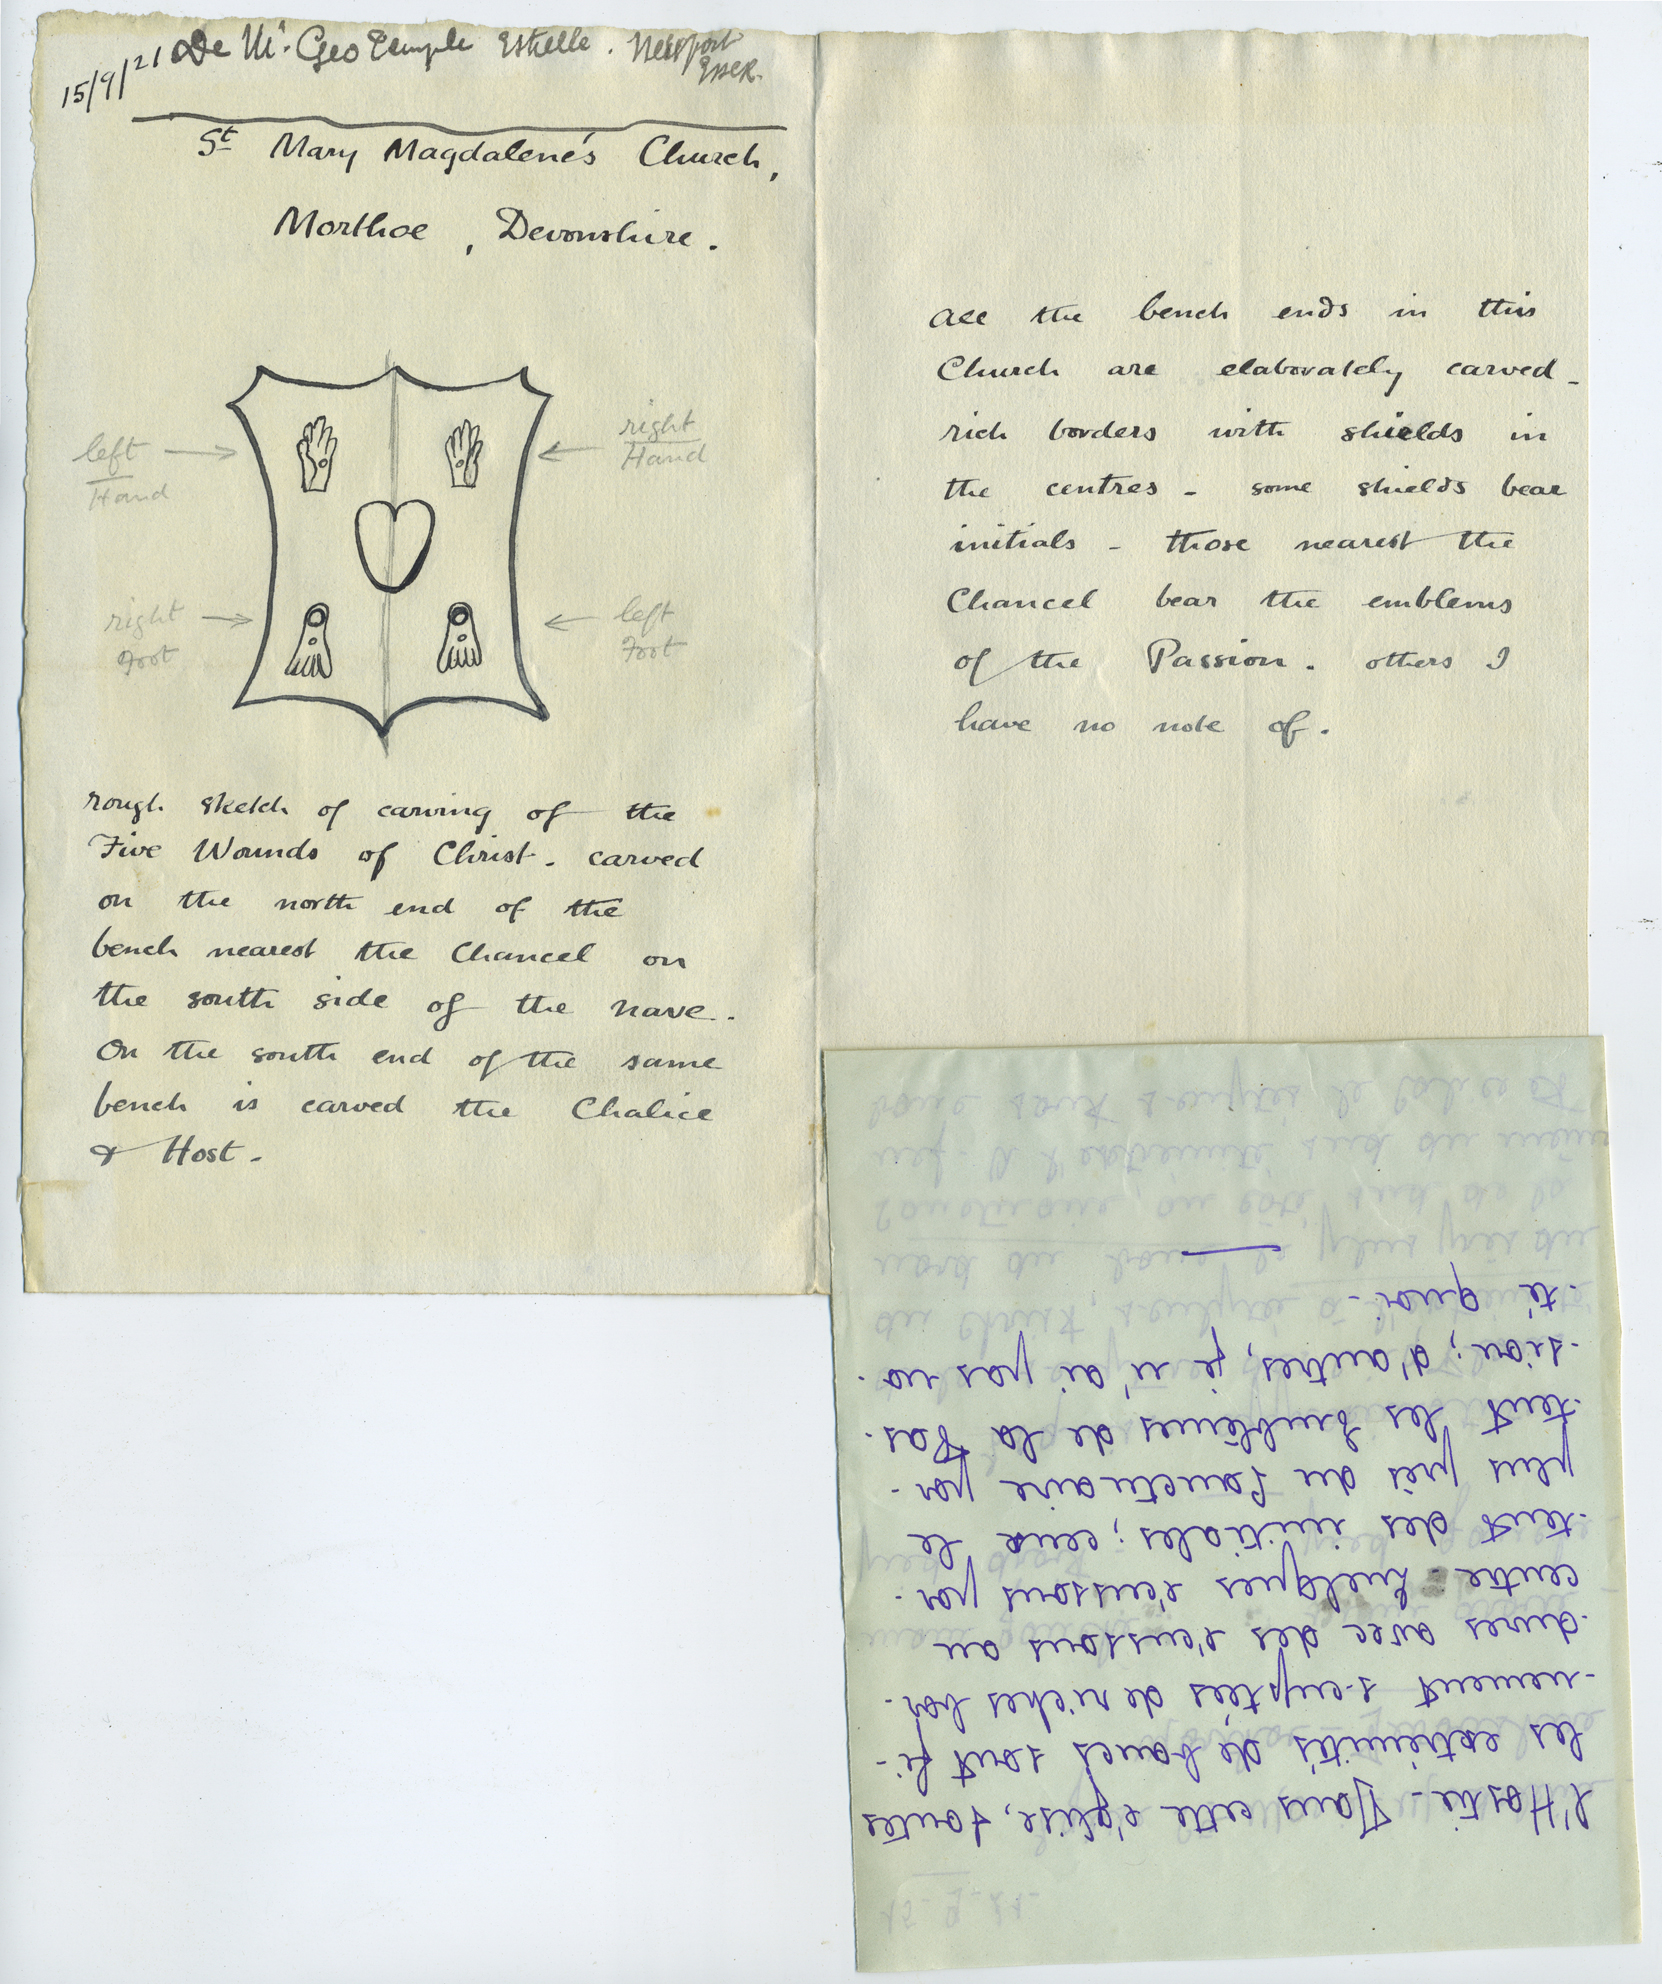 15/9/21 De Mr. Geo Temple Estelle. Newport
Essex.
St Mary Magdalene's Church,
Morthoe, Devonshire.
left
Hand
right
Hand
right
Foot
left
Foot
rough sketch of carving of the
Five Wounds of Christ - carved
on the north end of the
bench nearest the Chancel on
the south side of the nave -
On the south end of the same
bench is carved the Chalice
& Host -
All the bench ends in this
Church are elaborately carved -
rich borders with shields in
the centres - some shields bear
initials - those nearest the
Chancel bear the emblems
of the Passion. others I
have no note of.
l'Hostie - Dans cette église, toutes
les extrémités de bancs sont fi-
-nement sculptées de riches bor-
-dures avec des écussons au
centre - Quelques écussons por-
-tent des initiales ; ceux le
plus près du Sanctuaire por-
-tent les Emblèmes de la Pas-
-sion ; d'autres, je n'ai pas no-
-té quoi. -